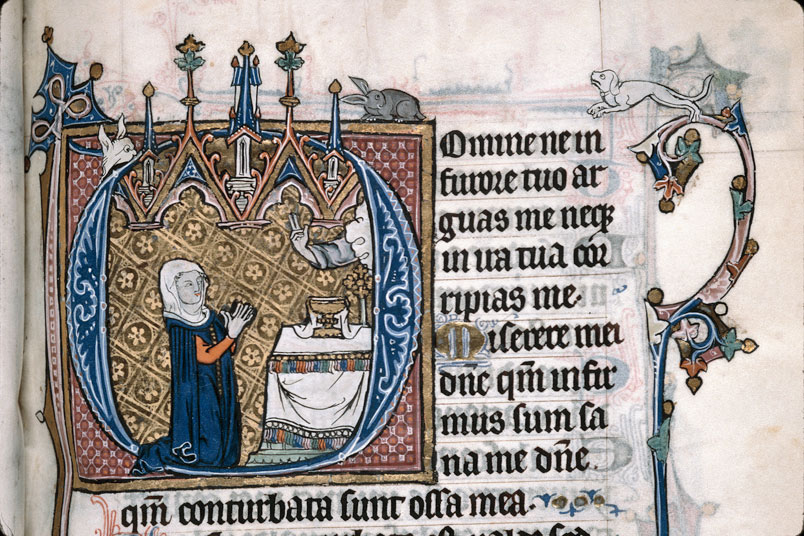 Omine ne in
furore tuo ar
guas me neq3
in ira tua cor
ripias me.
Miserere mei
dn̄e qm̄ infir
mus sum sa
na me dn̄e.
qm̄ conturbata sunt ossa mea.